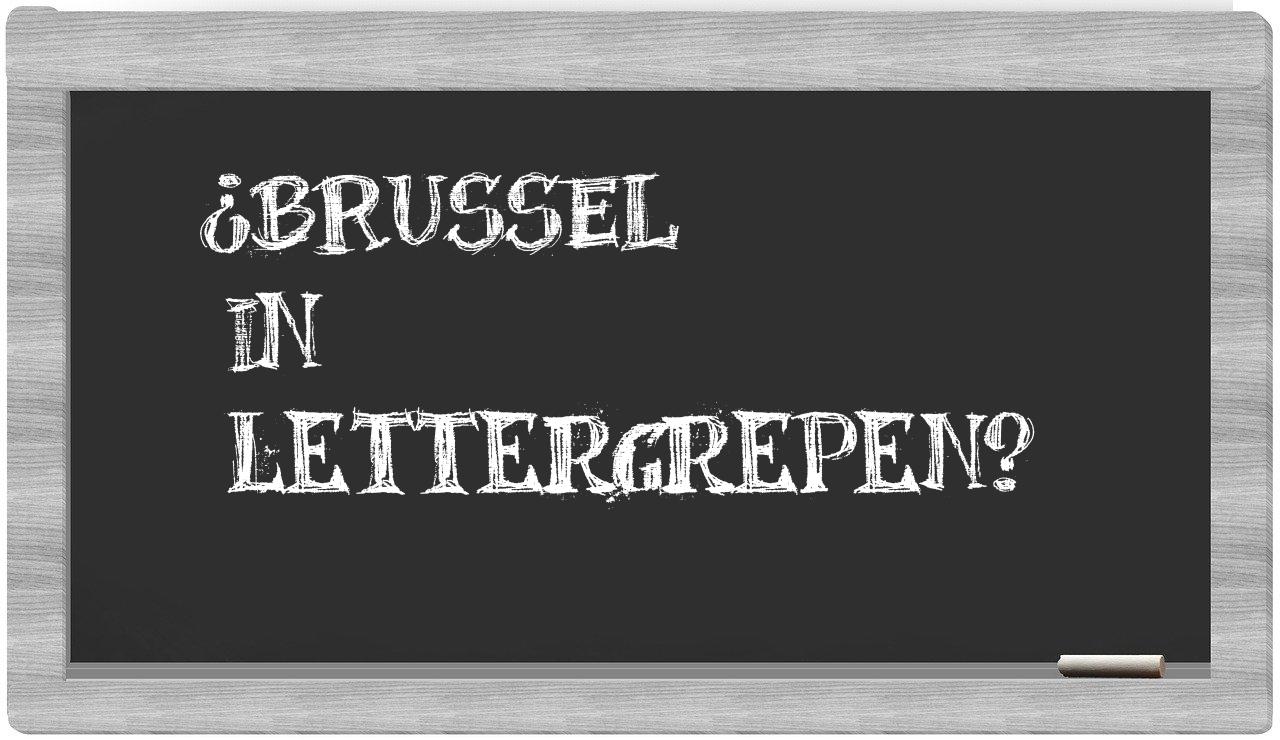 ¿BRUSSEL
IN
LETTERGREPEN?